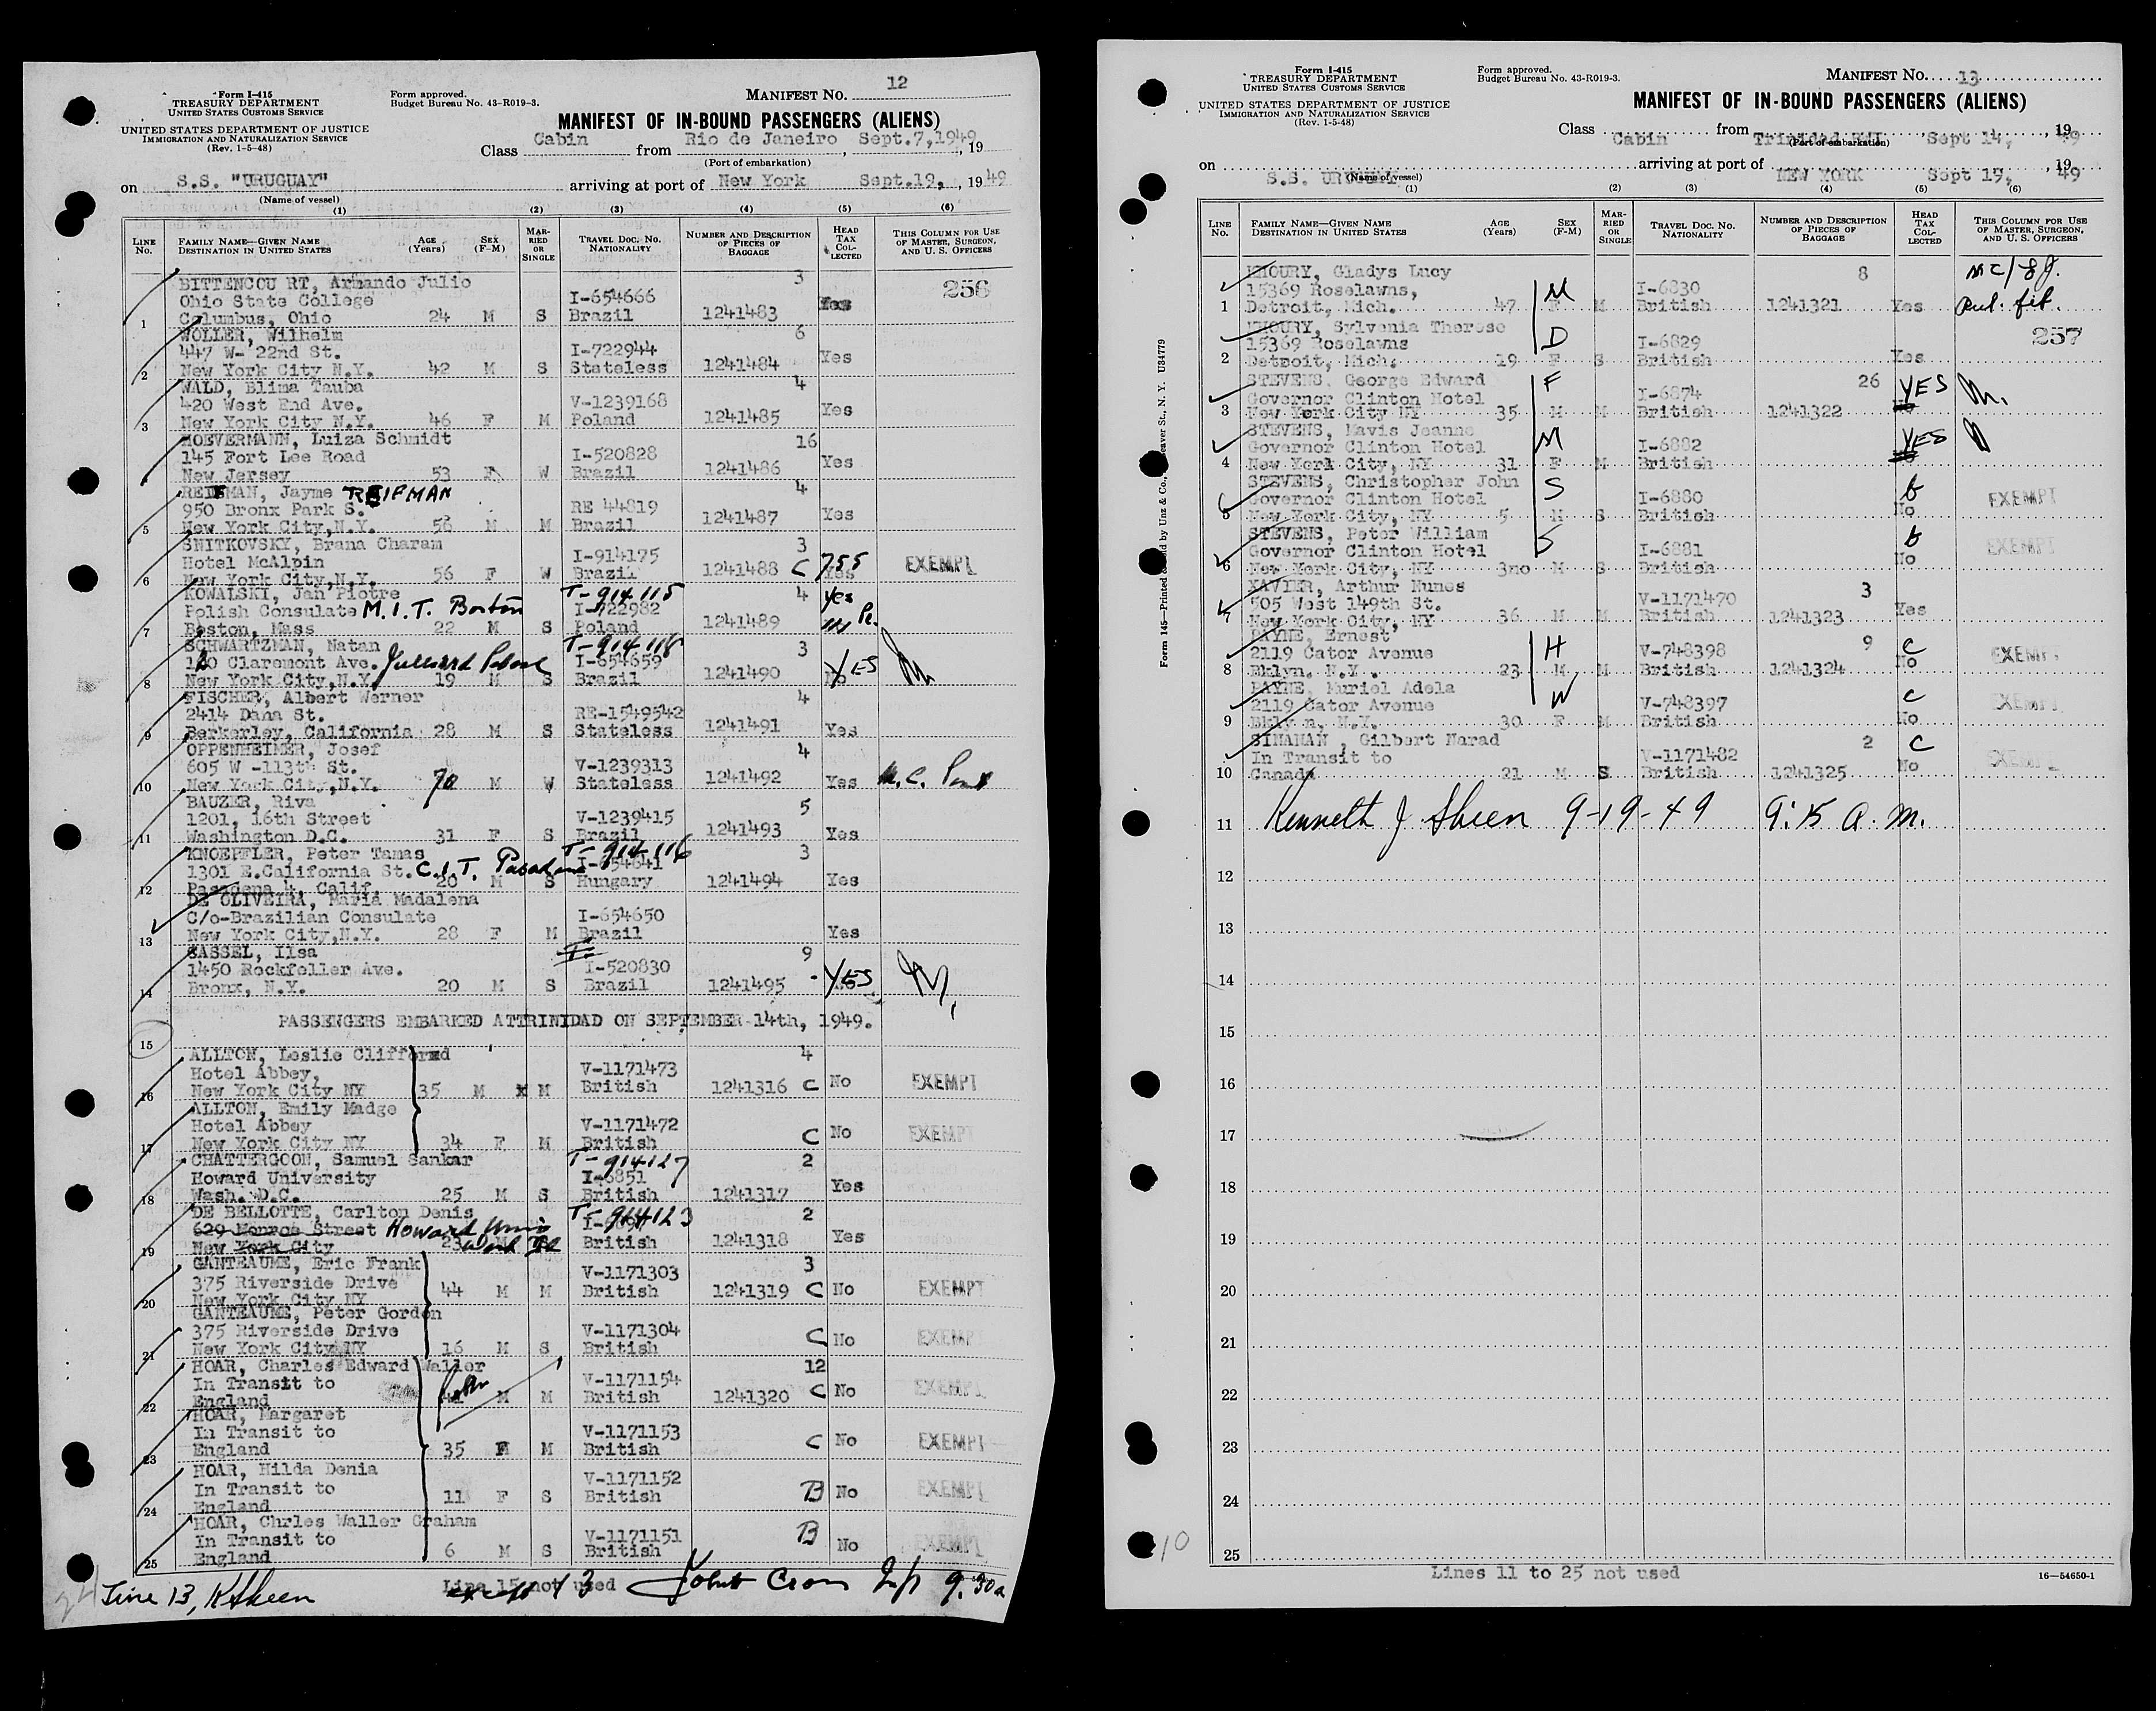 Form I-415
TREASURY DEPARTMENT
UNITED STATES CUSTOMS SERVICE
UNITED STATES DEPARTMENT OF JUSTICE
IMMIGRATION AND NATURALIZATION SERVICE
(Rev. 1-5-48)
Form approved.
Budget Bureau No. 43-R019-3.
MANIFEST NO. 12
MANIFEST OF IN-BOUND PASSENGERS (ALIENS)
Class Cabin from Rio de Janeiro, Sept.7,1949, 19
(Port of embarkation)
on S.S. "URUGUAY" arriving at port of New York Sept.19, 1949
(Name of vessel)
(1) (2) (3) (4) (5) (6)
LINE No. FAMILY NAME—GIVEN NAME DESTINATION IN UNITED STATES AGE (Years) SEX (F-M) MARRIED OR SINGLE TRAVEL DOC. NO. NATIONALITY NUMBER AND DESCRIPTION OF PIECES OF BAGGAGE HEAD TAX COLLECTED THIS COLUMN FOR USE OF MASTER, SURGEON, AND U. S. OFFICERS
BITTENCOU RT, Armando Julio 3
Ohio State College I-654666 256
1 Columbus, Ohio 24 M S Brazil 1241483 Yes
WOLLER, Wilhelm 6
447 W- 22nd St. I-722944
2 New York City N.Y. 42 M S Stateless 1241484 Yes
WALD, Blima Tauba 4
420 West End Ave. V-1239168
3 New York City N.Y. 46 F M Poland 1241485 Yes
HOEVERMANN, Luiza Schmidt 16
145 Fort Lee Road I-520828
New Jersey 53 F W Brazil 1241486 Yes
REIFMAN, Jayme REIFMAN 4
950 Bronx Park S. RE 44819
5 New York City,N.Y. 56 M M Brazil 1241487 Yes
SNITKOVSKY, Brana Charam 3
Hotel McAlpin I-914175
6 New York City,N.Y. 56 F W Brazil 1241488 C Yes EXEMPT
KOWALSKI, Jan Piotre T-914115 4 yes
Polish Consulate M.I.T. Boston I-722982
7 Boston, Mass 22 M S Poland 1241489
SCHWARTZMAN, Natan T-914118 3
Claremont Ave. I-654659
8 New York City,N.Y. 19 M S Brazil 1241490 YES
FISCHER, Albert Werner 4
2414 Dana St. RE-1549542
9 Berkerley, California 28 M S Stateless 1241491 Yes
OPPENHEIMER, Josef 4
605 W -113th St. V-1239313
10 New York City,N.Y. 70 M W Stateless 1241492 Yes
BAUZER, Riva 5
1201, 16th Street V-1239415
11 Washington D.C. 31 F S Brazil 1241493 Yes
KNOEPFLER, Peter Tamas T-914116 3
1301 E.California St. C.I.T. Pasadena I-654641
12 Pasadena 4, Calif. 20 M S Hungary 1241494 Yes
DE OLIVEIRA, Maria Madalena
C/o-Brazilian Consulate I-654650
13 New York City,N.Y. 28 F M Brazil Yes
SASSEL, Ilsa 9
1450 Rockfeller Ave. I-520830
14 Bronx, N.Y. 20 M S Brazil 1241495 YES
PASSENGERS EMBARKED ATTRINIDAD ON SEPTEMBER 14th, 1949.
15
ALLTON, Leslie Clifford 4
Hotel Abbey, V-1171473
16 New York City NY 35 M M British 1241316 C No EXEMPT
ALLTON, Emily Madge
Hotel Abbey V-1171472
17 New York City NY 34 F M British C No EXEMPT
CHATTERGOON, Samuel Sankar T-914127 2
Howard University I-6851
18 Wash. D.C. 25 M S British 1241317 Yes
DE BELLOTTE, Carlton Denis T-914123 2
629 Monroe Street Howard Univ
19 New York City 23 British 1241318 Yes
GANTEAUME, Eric Frank 3
375 Riverside Drive V-1171303
20 New York City NY 44 M M British 1241319 C No EXEMPT
GANTEAUME, Peter Gordon
375 Riverside Drive V-1171304
21 New York City NY 16 M S British C No EXEMPT
HOAR, Charles Edward Waller 12
In Transit to V-1171154
22 England M M British 1241320 C No EXEMPT
HOAR, Margaret
In Transit to V-1171153
23 England 35 F M British C No EXEMPT
HOAR, Hilda Denia
In Transit to V-1171152
24 England 11 F S British B No EXEMPT
HOAR, Chrles Waller Graham
In Transit to V-1171151 B
25 England 6 M S British No EXEMPT
Line 15 not used
Line 13, K Sheen except 13 9:30a
24
Form I-415
TREASURY DEPARTMENT
UNITED STATES CUSTOMS SERVICE
UNITED STATES DEPARTMENT OF JUSTICE
IMMIGRATION AND NATURALIZATION SERVICE
(Rev. 1-5-48)
Form approved.
Budget Bureau No. 43-R019-3.
MANIFEST NO. 13
MANIFEST OF IN-BOUND PASSENGERS (ALIENS)
Class Cabin from Trinidad BWI, Sept 14, 1949
(Port of embarkation)
on S.S. URUGUAY arriving at port of NEW YORK Sept 19, 1949
(Name of vessel)
(1) (2) (3) (4) (5) (6)
LINE No. FAMILY NAME—GIVEN NAME DESTINATION IN UNITED STATES AGE (Years) SEX (F-M) MARRIED OR SINGLE TRAVEL DOC. NO. NATIONALITY NUMBER AND DESCRIPTION OF PIECES OF BAGGAGE HEAD TAX COLLECTED THIS COLUMN FOR USE OF MASTER, SURGEON, AND U. S. OFFICERS
KHOURY, Gladys Lucy 8
15369 Roselawns, M I-6830
1 Detroit, Mich. 47 F M British 1241321 Yes
KHOURY, Sylvenia Therese 257
15369 Roselawns D I-6829
2 Detroit, Mich. 19 F S British Yes
STEVENS, George Edward F 26
Governor Clinton Hotel I-6874 YES
3 New York City NY 35 M M British 1241322 No
STEVENS, Mavis Jeanne
Governor Clinton Hotel M I-6882 YES
4 New York City, NY 31 F M British No
STEVENS, Christopher John
Governor Clinton Hotel S I-6880 EXEMPT
5 New York City, NY 5 M S British No
STEVENS, Peter William
Governor Clinton Hotel S I-6881 EXEMPT
6 New York City, NY 3mo M S British No
XAVIER, Arthur Nunes 3
505 West 149th St. V-1171470
7 New York City, NY 36 M M British 1241323 Yes
PAYNE, Ernest 9 C
2119 Cator Avenue H V-748398 EXEMPT
8 Bklyn. N.Y. 23 M M British 1241324 No
PAYNE, Muriel Adela C
2119 Cator Avenue W V-748397 EXEMPT
9 Bklyn, N.Y. 30 F M British No
SINANAN, Gilbert Narad 2 C
In Transit to V-1171482 EXEMPT
10 Canada 21 M S British 1241325 No
11 Kenneth J Sheen 9-19-49 9:15 a.m.
12
13
14
15
16
17
18
19
20
21
22
23
24
25
Lines 11 to 25 not used
16—54650-1
10